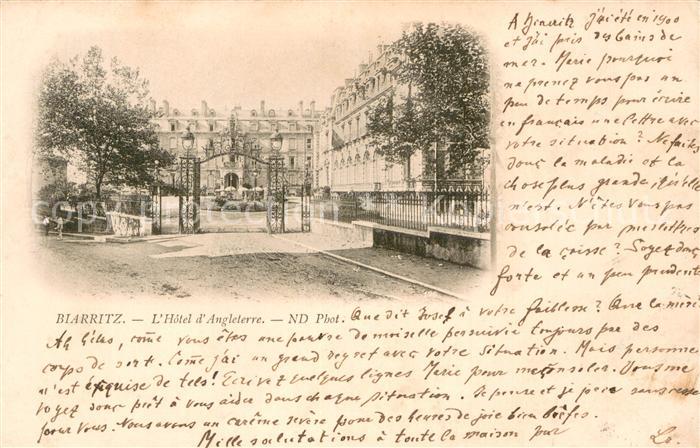 A Biarritz j'ai été en 1900
et j'ai pris des bains de
mer. Marie pourquoi
ne prenez vous pas un
peu de temps pour écrire
en français une lettre avec
votre situation? Ne faites
donc la maladie et la
chose plus grande
n'est. N'êtes vous pas
consolée par mes lettres
de la Soyez donc
forte et un peu prudente
BIARRITZ. — L'Hôtel d'Angleterre. — ND Phot.
Que dit Josef à votre faiblesse? Que la
Ah hélas, come vous êtes une pauvre demoiselle persuivie toujours par des
corps de sort. Come j'ai un grand degret avec votre situation. Mais personne
n'est de tels! Ecrivez quelques lignes Marie pour me consoler. Vous me
voyez donc prêt à vous aider dans chaque situation. Je pense et je
pour vous. Nous avons un carême sévère pour des heures de joie bien
Mille salutations à toute la maison par
Lo.